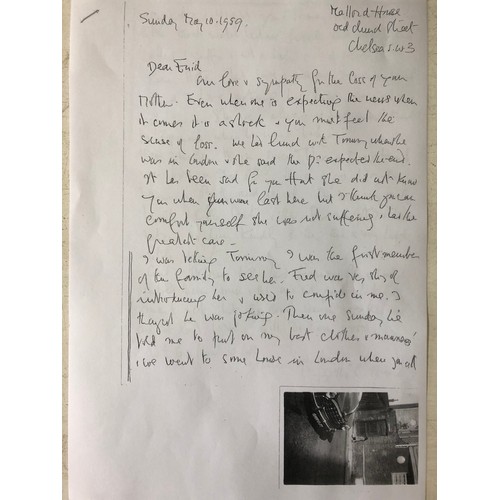 Sunday May 10. 1959.
Mallord House
old church Street
Chelsea S.W3
Dear Enid
Our love & sympathy for the loss of your
Mother. Even when one is expecting the news when
it comes it is a shock & you must feel the
sense of loss. We had lunch with Tommy when she
was in London & she said the Dr expected the end.
It has been sad for you that she did not know
you when you were last here but I think you can
comfort yourself she was not suffering & had the
greatest care -
I was telling Tommy I was the first member
of the family to see her. Fred was very shy of
introducing her & used to confide in me. I
thought he was joking. Then one Sunday he
told me to put on my best clothes & manners
& we went to some house in London where you all